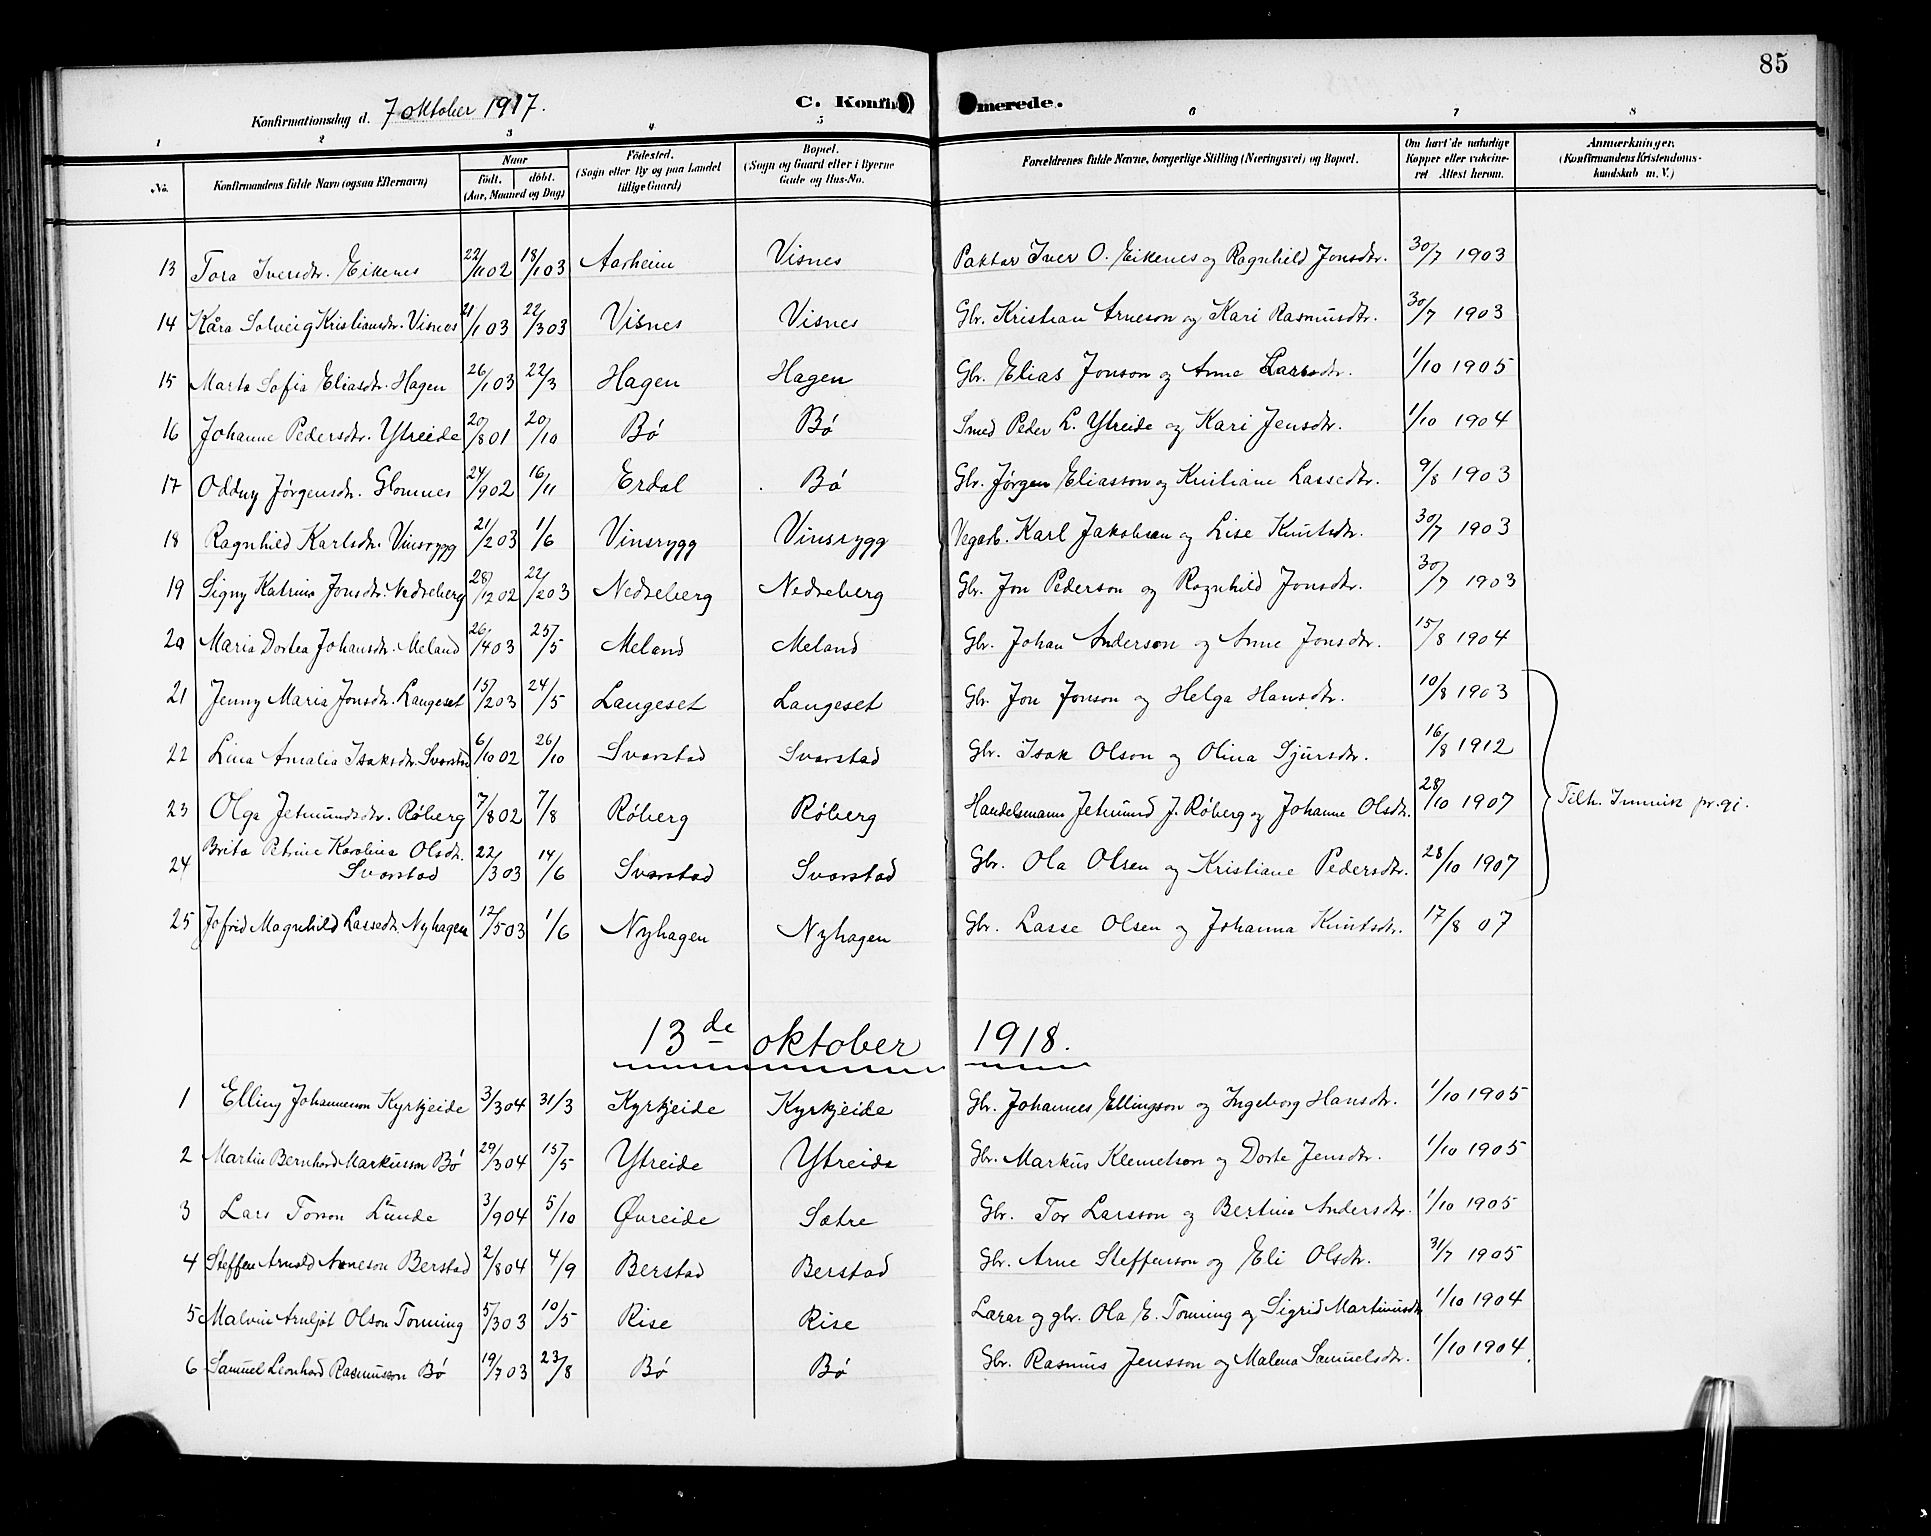 85
Konfirmationsdag d. 7 oktober 1917.
C. Konfirmerede.
1 2 3 4 5 6 7 8
No. Konfirmandens fulde Navn (ogsaa Efternavn) Naar født. døbt. (Aar, Maaned og Dag) Fødested. (Sogn eller By og paa Landet tillige Gaard) Bopæl. (Sogn og Gaard eller i Byerne Gade og Hus-No. Forældrenes fulde Navne, borgerlige Stilling (Næringsvei) og Bopæl. Om havt de naturlige Kopper eller vakcineret Attest herom. Anmærkninger. (Konfirmandens Kristendomskundskab m. V.)
13 Tora Iversdtr. Eikenes 22/11 02 18/1 03 Aarheim Visnes Paktar Iver O. Eikenes og Ragnhild Jonsdtr. 30/7 1903
14 Kåra Solveig Kristiansdtr. Visnes 21/1 03 22/3 03 Visnes Visnes Gbr. Kristian Arneson og Kari Rasmusdtr. 30/7 1903
15 Marta Sofia Eliasdtr. Hagen 26/1 03 22/3 Hagen Hagen Gbr. Elias Jonson og Anne Larsdtr. 1/10 1905
16 Johanne Pedersdtr. Ytreide 20/8 01 20/10 Bø Bø Smed Peder L. Ytreide og Kari Jensdtr. 1/10 1904
17 Oddny Jørgensdtr. Glomnes 24/9 02 16/11 Erdal Bø Gbr. Jørgen Eliasson og Kristiane Lassedtr. 9/8 1903
18 Ragnhild Karlsdtr. Vinsrygg 21/2 03 1/6 Vinsrygg Vinsrygg Vegarb. Karl Jakobsen og Lise Knutsdtr. 30/7 1903
19 Signy Katrine Jonsdtr. Nedreberg 28/12 02 22/2 03 Nedreberg Nedreberg Gbr. Jon Pederson og Ragnhild Jonsdtr. 30/7 1903
20 Maria Dortea Johansdtr. Meland 26/4 03 25/5 Meland Meland Gbr. Johan Anderson og Anne Jonsdtr. 15/8 1904
21 Jenny Maria Jonsdtr. Langeset 15/2 03 24/5 Langeset Langeset Gbr. Jon Jonson og Helga Hansdtr. 10/8 1903
22 Lina Amalia Isaksdtr. Svarstad 6/10 02 26/10 Svarstad Svarstad Gbr. Isak Olson og Olina Sjursdtr. 16/8 1912
23 Olga Jetmundsdtr. Røberg 7/8 02 7/8 Røberg Røberg Handelsmann Jetmund J. Røberg og Johanne Olsdtr. 28/10 1907 Tilh. Innvik pr.gj.
24 Brita Petrine Karolina Olsdtr. Svarstad 22/3 03 14/6 Svarstad Svarstad Gbr. Ola Olsen og Kristiane Pedersdtr. 28/10 1907
25 Jofrid Magnhild Lassedtr. Nyhagen 12/5 03 1/6 Nyhagen Nyhagen Gbr. Lasse Olsen og Johanna Knutsdtr. 17/8 07
13de oktober 1918.
1 Elling Johanneson Kyrkjeide 3/3 04 31/3 Kyrkjeide Kyrkjeide Gbr. Johannes Ellingson og Ingeborg Hansdtr. 1/10 1905
2 Martin Bernhard Markusson Bø 29/3 04 15/5 Ytreide Ytreide Gbr. Markus Klemetson og Dorte Jensdtr. 1/10 1905
3 Lars Torson Lunde 3/9 04 5/10 Øvreide Sætre Gbr. Tor Larsson og Bertine Andersdtr. 1/10 1905
4 Steffen Arnold Arneson Berstad 2/8 04 4/9 Berstad Berstad Gbr. Arne Steffenson og Eli Olsdtr. 31/7 1905
5 Malvin Arnljot Olson Tonning 5/3 03 10/5 Rise Rise Lærar og gbr. Ola E. Tonning og Sigrid Martinusdtr 1/10 1904
6 Samuel Leonhard Rasmusson Bø 19/7 03 23/8 Bø Bø Gbr. Rasmus Jensson og Malena Samuelsdtr. 1/10 1904.